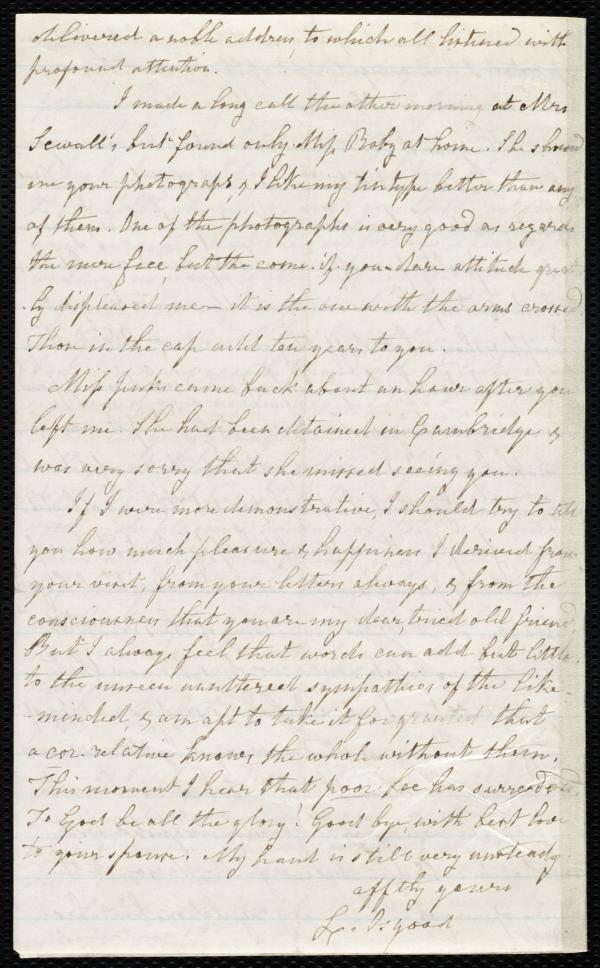 delivered a noble address, to which all listened with
profound attention.
I made a long call the other morning at Mrs
Sewall's but found only Miss Raby at home. She showed
me your photographs, & I like my tintype better than any
of them. One of the photographs is very good as regards
the mere face, but the come-if-you-dare attitude great-
ly displeased me — it is the one with the arms crossed
Those in the cap add ten years to you.
Miss Jenks came back about an hour after you
left me. She had been detained in Cambridge &
was very sorry that she missed seeing you.
If I were more demonstrative, I should try to tell
you how much pleasure & happiness I derived from
your visit, from your letters always, & from the
consciousness that you are my dear, tried old friend
But I always feel that words can add but little
to the unseen unuttered sympathies of the like-
-minded, & am apt to take it for granted that
a cor-relative knows the whole without them.
This moment I hear that poor Lee has surrendered.
To God be all the glory! Good bye, with best love
to your spouse. My hand is still very unsteady.
afftly yours
L. Osgood